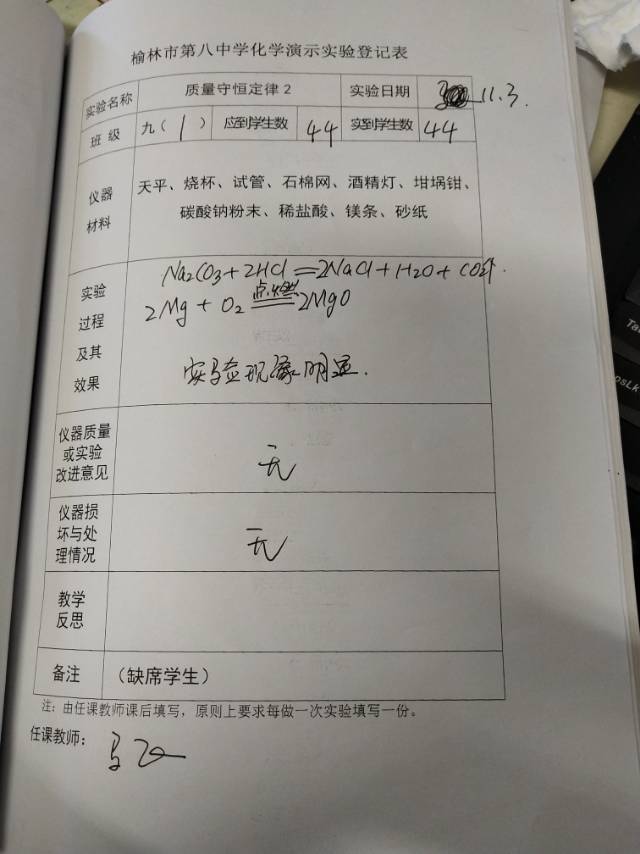 榆林市第八中学化学演示实验登记表
实验名称 质量守恒定律2 实验日期 11.3.
班 级 九(1) 应到学生数 44 实到学生数 44
仪器
材料
天平、烧杯、试管、石棉网、酒精灯、坩埚钳、
碳酸钠粉末、稀盐酸、镁条、砂纸
实验
过程
及其
效果
Na2CO3+2HCl=2NaCl+H2O+CO2↑.
2Mg+O2 点燃 2MgO
实验现象明显.
仪器质量
或实验
改进意见
无
仪器损
坏与处
理情况
无
教学
反思
备注 (缺席学生)
注:由任课教师课后填写,原则上要求每做一次实验填写一份。
任课教师: